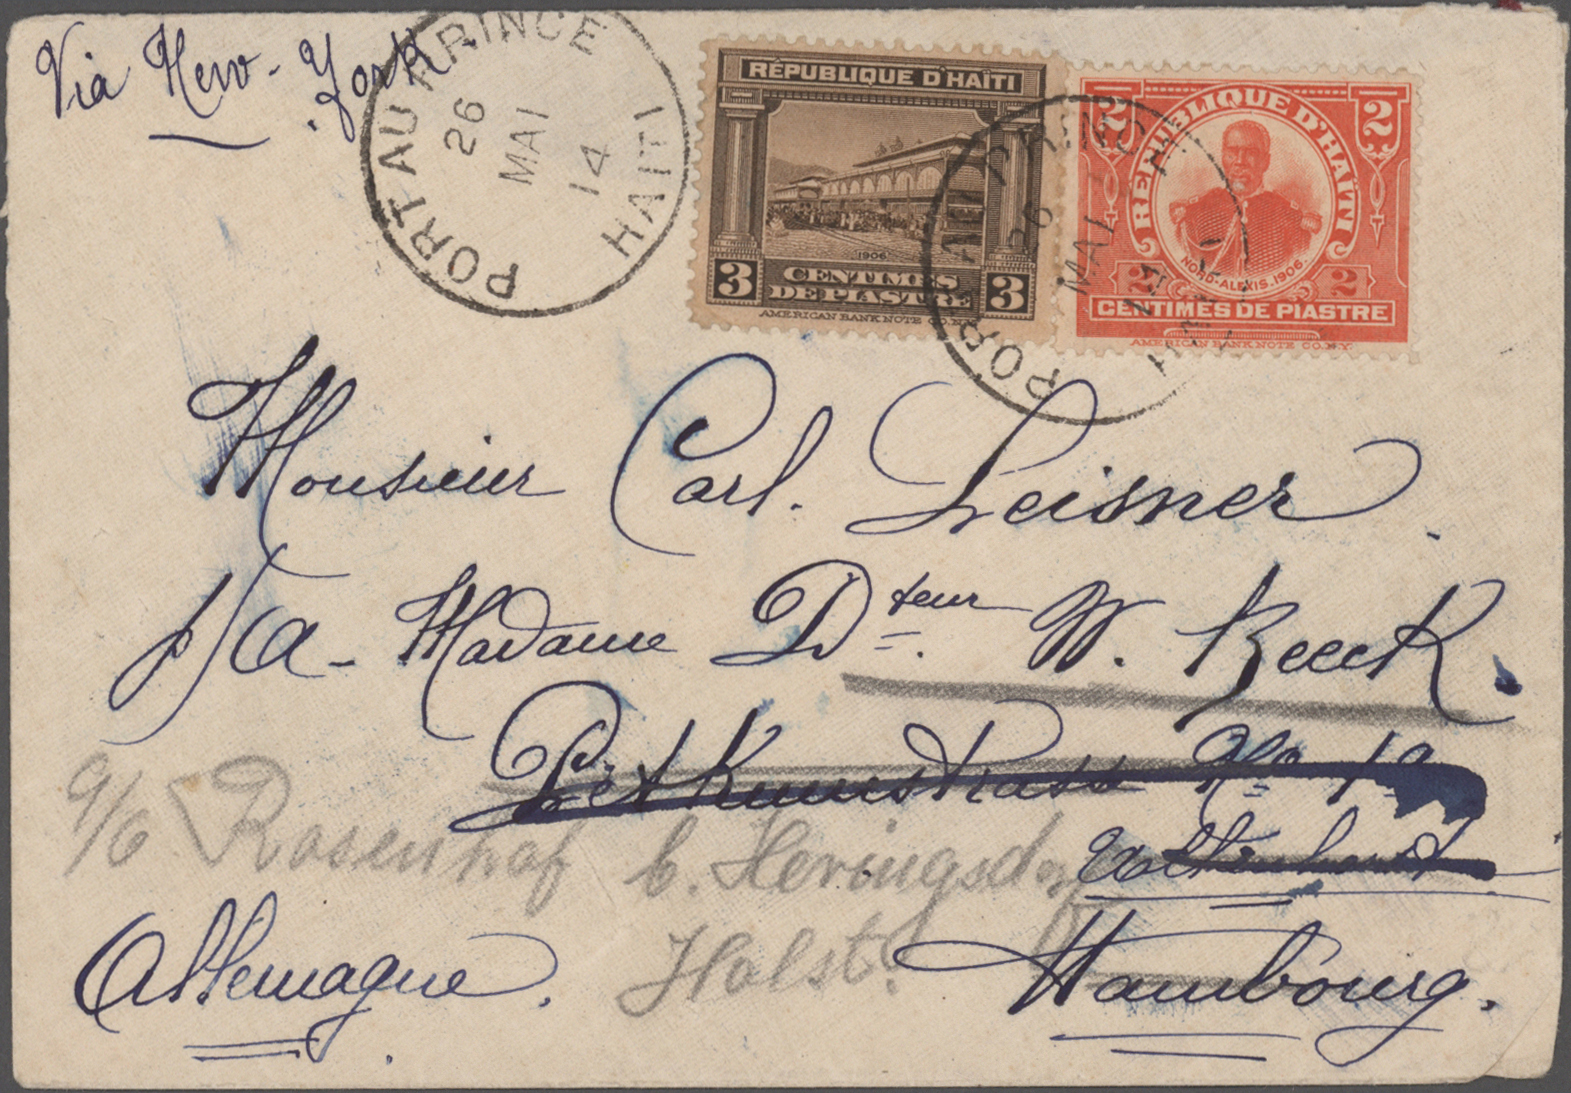 Via New-York.
PORT AU PRINCE
26
MAI
14
HAITI
RÉPUBLIQUE D'HAÏTI
1906
3 CENTIMES 3
DE PIASTRE
AMERICAN BANK NOTE CO. N.Y.
2 2
RÉPUBLIQUE D'HAÏTI
NORD-ALEXIS. 1906.
2 2
CENTIMES DE PIASTRE
AMERICAN BANK NOTE CO. N.Y.
PORT AU PRINCE
26
MAI
14
HAITI
Monsieur Carl. Leisner.
p/a- Madame Dteur. W. Keeck.
No 19
c/o Rosenhof b. Heringsdorf
Holst.
Allemagne.
Hambourg.